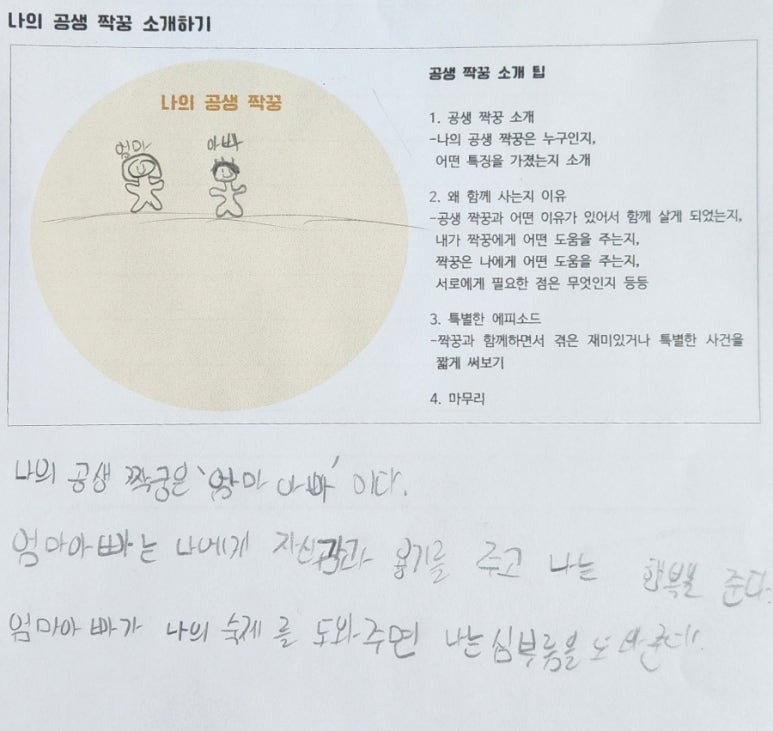 나의 공생 짝꿍 소개하기
나의 공생 짝꿍
엄마 아빠
공생 짝꿍 소개 팁
1. 공생 짝꿍 소개
-나의 공생 짝꿍은 누구인지,
어떤 특징을 가졌는지 소개
2. 왜 함께 사는지 이유
-공생 짝꿍과 어떤 이유가 있어서 함께 살게 되었는지,
내가 짝꿍에게 어떤 도움을 주는지,
짝꿍은 나에게 어떤 도움을 주는지,
서로에게 필요한 점은 무엇인지 등등
3. 특별한 에피소드
-짝꿍과 함께하면서 겪은 재미있거나 특별한 사건을
짧게 써보기
4. 마무리
나의 공생 짝궁은 '엄마 아빠' 이다.
엄마아빠는 나에게 자신감과 용기를 주고 나는 행복을 준다.
엄마아빠가 나의 숙제를 도와주면 나는 심부름을